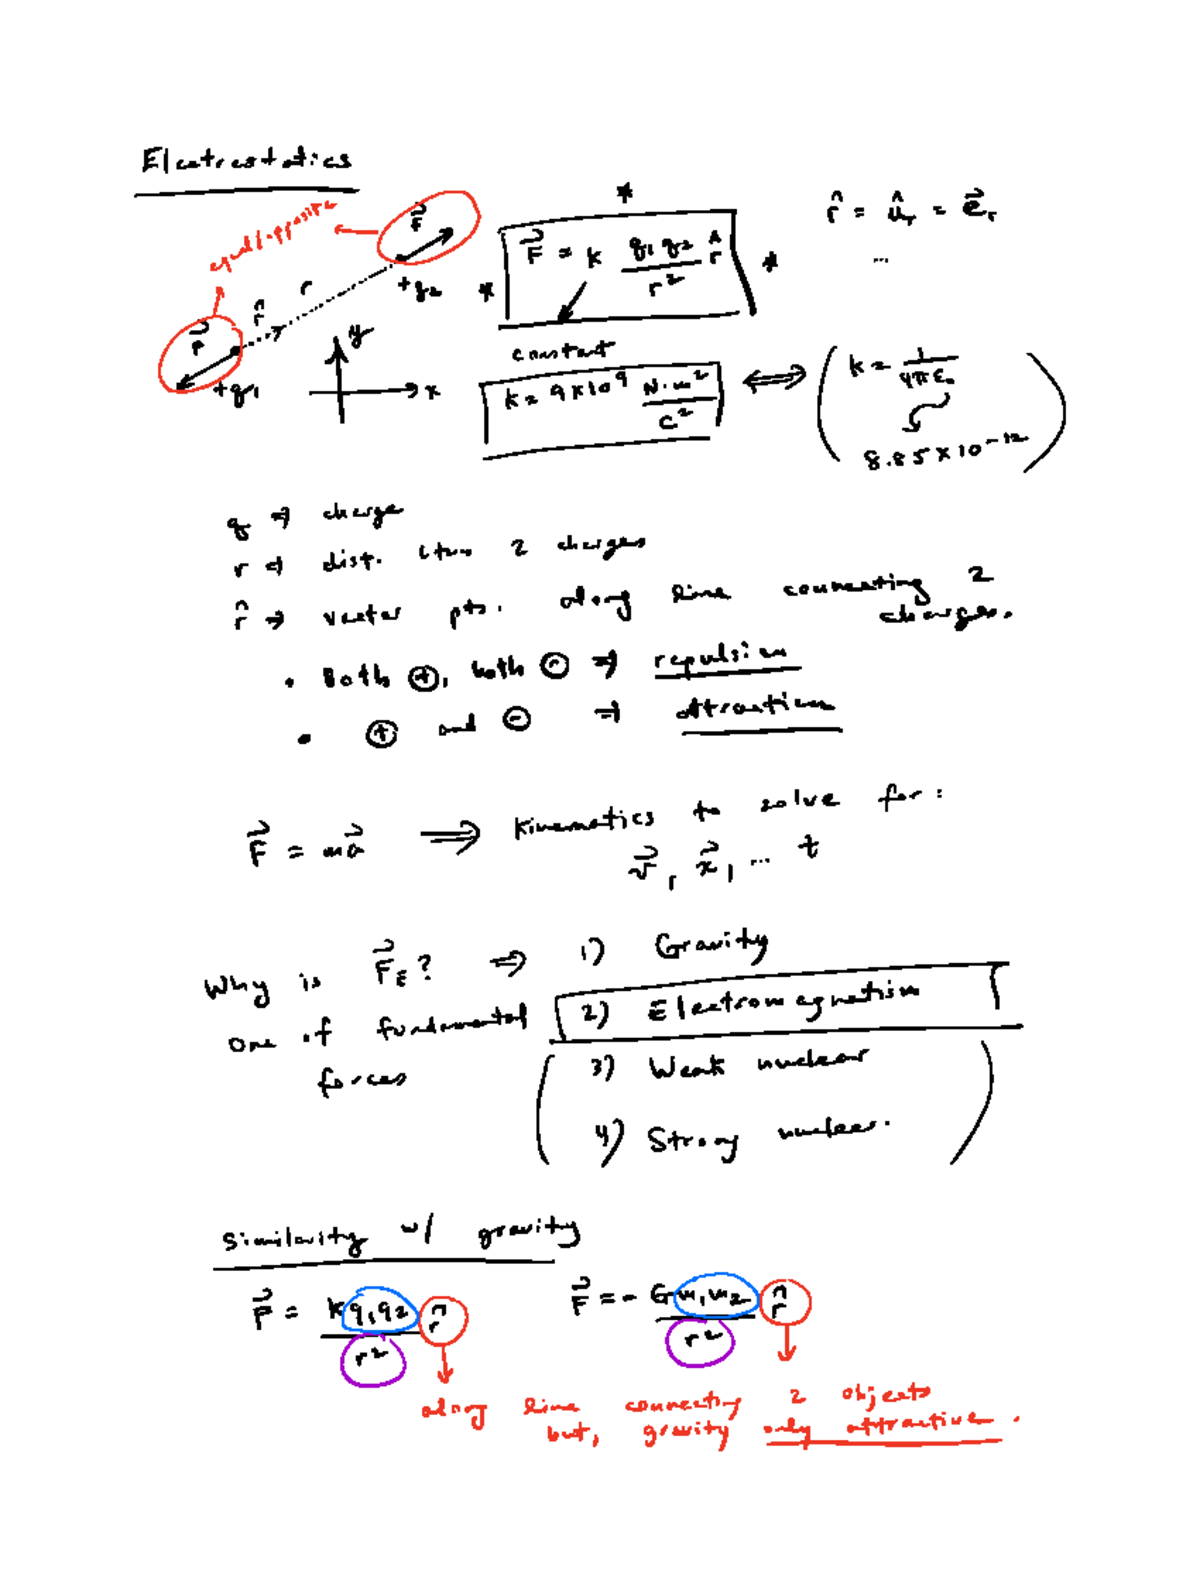 Electrostatics
equal/opposite
F⃗
r
+q₂
r̂
F⃗
+q₁
y
x
*
* F⃗ = k q₁q₂/r² r̂ *
constant
k = 9×10⁹ N·m²/C² ⟺ ( k = 1/4πε₀
8.85×10⁻¹² )
r̂ = û_r = e⃗_r
...
q ⇒ charge
r ⇒ dist. btwn 2 charges
r̂ ⇒ vector pts. along line connecting 2
charges.
• Both ⊕, both ⊖ ⇒ repulsion
• ⊕ and ⊖ ⇒ attraction
F⃗ = ma⃗ ⟹ kinematics to solve for:
v⃗, x⃗, ... t
Why is F⃗_E? ⇒ 1) Gravity
one of fundamental 2) Electromagnetism
forces ( 3) Weak nuclear
4) Strong nuclear. )
Similarity w/ gravity
F⃗ = kq₁q₂/r² r̂ F⃗ = - Gm₁m₂/r² r̂
along line connecting 2 objects
but, gravity only attractive.